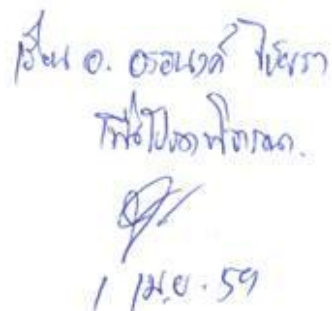 เรียน อ. อรอนงค์ ไชยรา
เพื่อโปรดพิจารณา.
1 เม.ย. 59